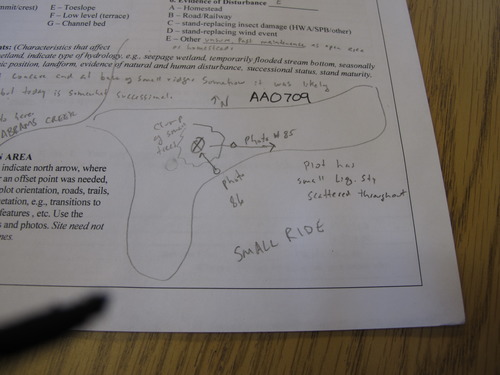 mmit/crest) E – Toeslope
F – Low level (terrace)
G – Channel bed
8. Evidence of Disturbance E
A – Homestead
B – Road/Railway
C – stand-replacing insect damage (HWA/SPB/other)
D – stand-replacing wind event
E – Other unkwn. Past maintenance as open area
or homestead
nts: (Characteristics that affect
wetland, indicate type of hydrology, e.g., seepage, temporarily flooded stream bottom, seasonally
ic position, landform, evidence of natural and human disturbance, successional status, stand maturity,
concave and at base of small ridge. Somehow it was likely
but today is somewhat successional.
ABRAMS CREEK
↑N AA0709
Clump
of small
trees
Photo # 85
Photo
86
Plot has
small Liq. sty
scattered throughout
SMALL RIDE
N AREA
indicate north arrow, where
r an offset point was needed,
plot orientation, roads, trails,
etation, e.g., transitions to
features, etc. Use the
s and photos. Site need not
mes.